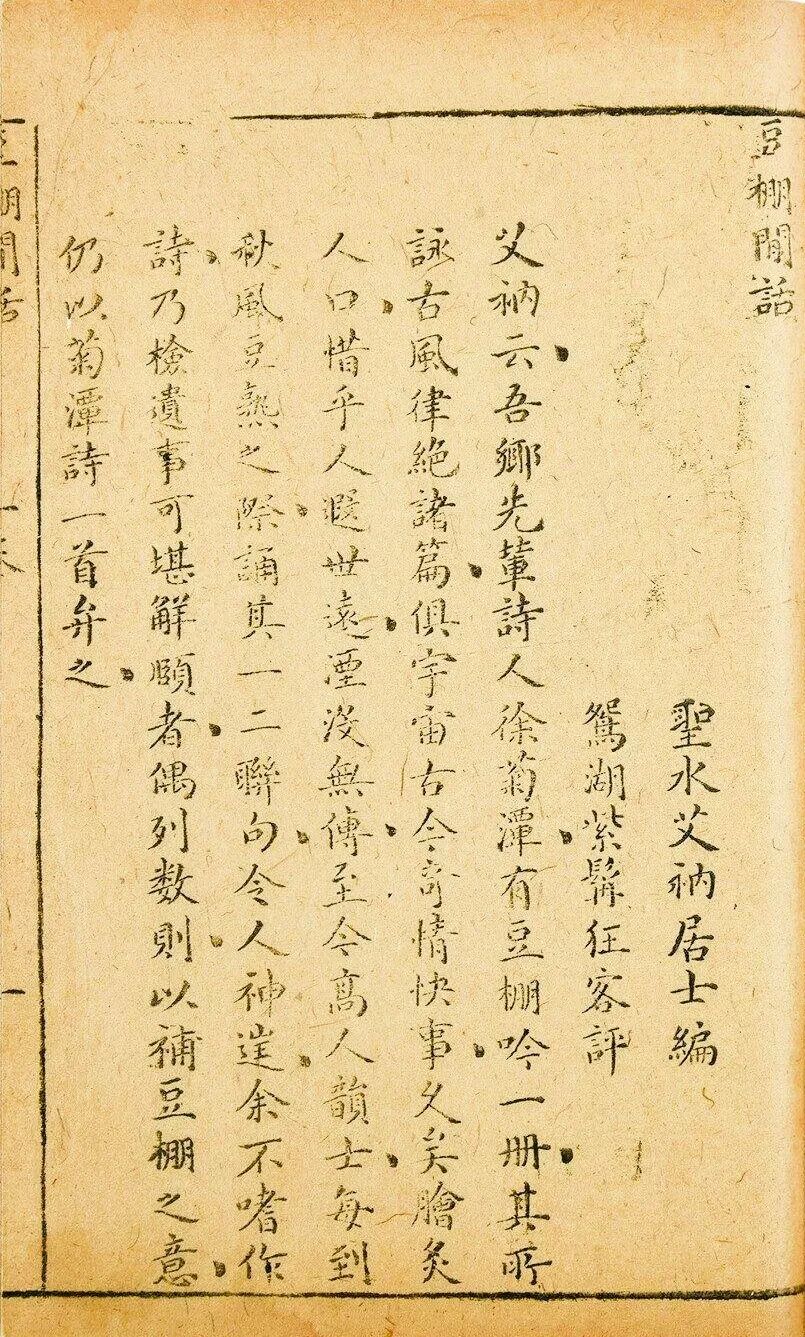 豆棚閒話
聖水艾衲居士編
鴛湖紫髯狂客評
艾衲云吾鄉先輩詩人徐菊潭有豆棚吟一冊其所
詠古風律絕諸篇俱宇宙古今奇情快事久矣膾炙
人口惜乎人遐世遠湮没無傳至今高人韻士每到
秋風豆熟之際誦其一二聯句令人神逞余不嗜作
詩乃檢遺事可堪解頤者偶列数則以補豆棚之意
仍以菊潭詩一首弁之
豆棚閒話 一